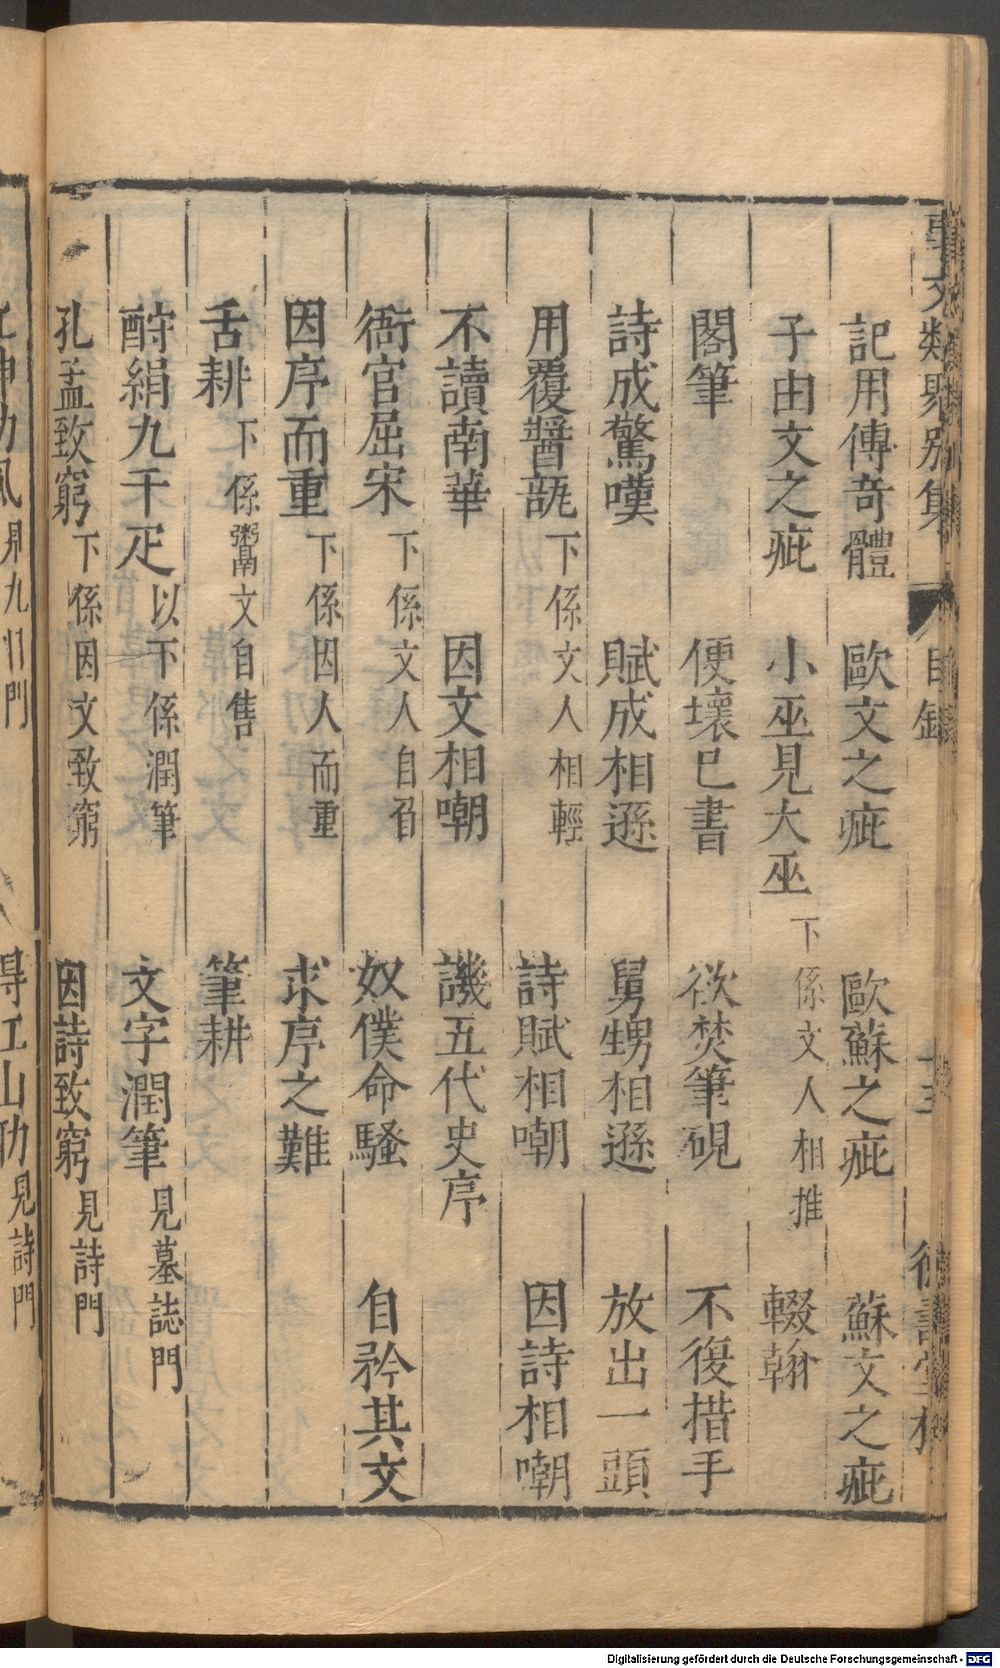 記用傳奇體　歐文之疵　歐蘇之疵　蘇文之疵
子由文之疵　小巫見大巫　下係文人相推　輟翰
閣筆　便壞已書　欲焚筆硯　不復措手
詩成驚嘆　賦成相遜　舅甥相遜　放出一頭
用覆醬瓿　下係文人相輕　詩賦相嘲　因詩相嘲
不讀南華　因文相嘲　譏五代史序
衙官屈宋　下係文人自負　奴僕命騷　自矜其文
因序而重　下係因人而重　求序之難
舌耕　下係鬻文自售　筆耕
酧絹九千疋　以下係潤筆　文字潤筆　見墓誌門
孔孟致窮　下係因文致窮　因詩致窮　見詩門
得江山助　見詩門
Digitalisierung gefördert durch die Deutsche Forschungsgemeinschaft - DFG